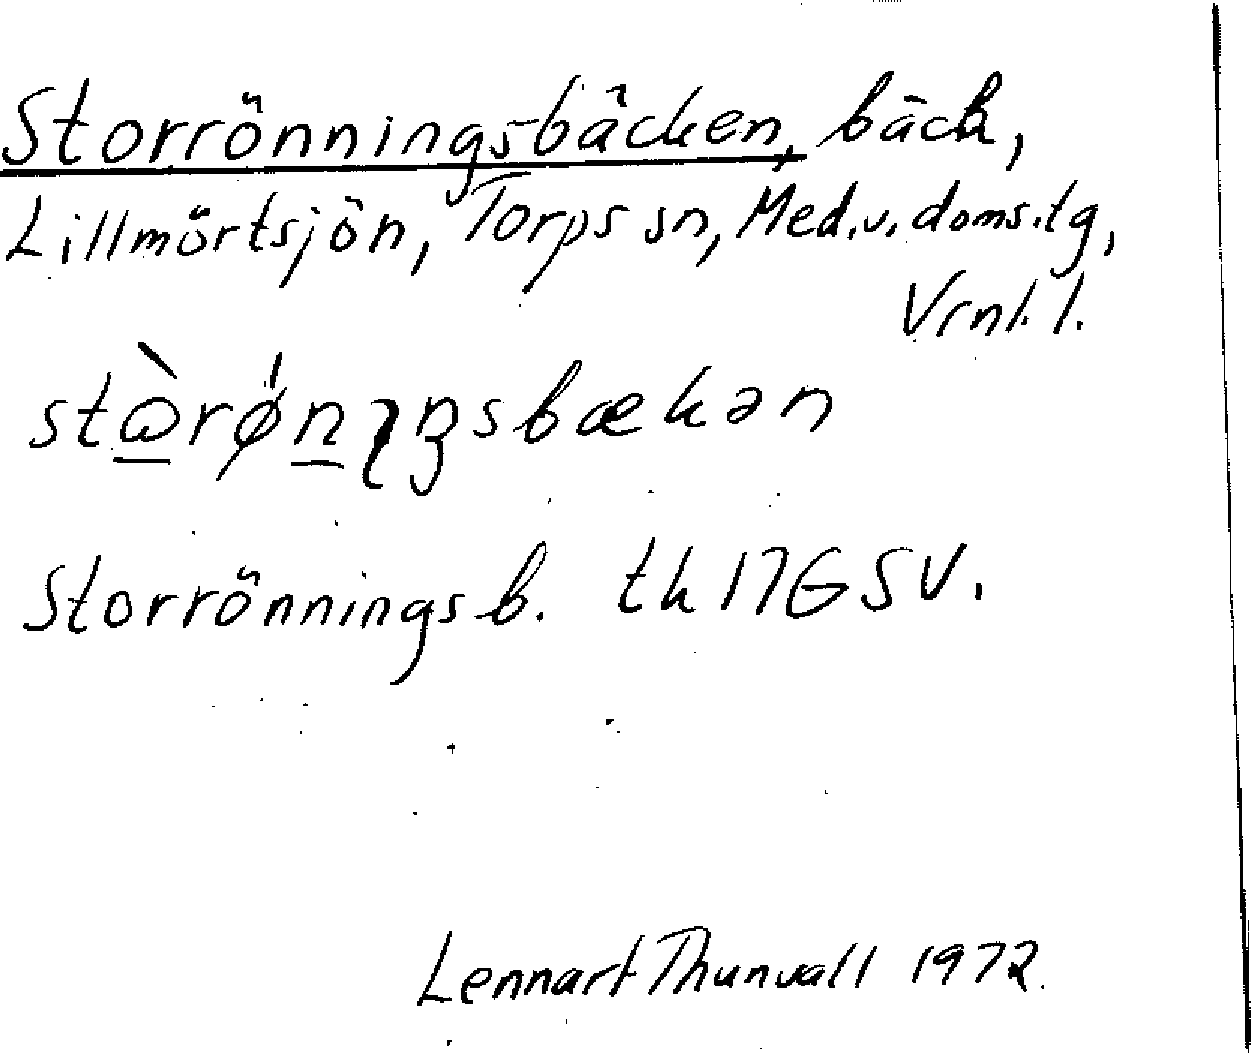 Storrönningsbäcken, bäck,
Lillmörtsjön, Torps sn, Med.v. doms.tg,
Vrnl. l.
stɷ̀rǿnɿŋsbækən
Storrönningsb. tk 17G SV.
Lennart Thunvall 1972.